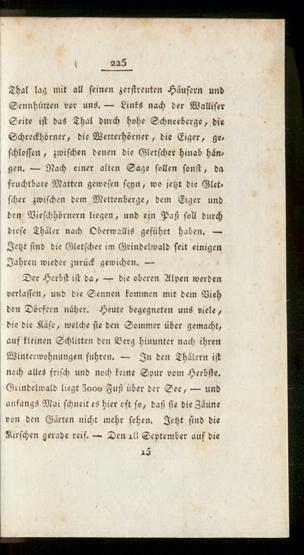 225
Thal lag mit all seinen zerstreuten Häusern und
Sennhütten vor uns. — Links nach der Walliser
Seite ist das Thal durch hohe Schneeberge, die
Schreckhörner, die Wetterhörner, die Eiger, ge-
schlossen, zwischen denen die Gletscher hinab hän-
gen. — Nach einer alten Sage sollen sonst, da
fruchtbare Matten gewesen seyn, wo jetzt die Glet-
scher zwischen dem Mettenberge, dem Eiger und
den Vieschhörnern liegen, und ein Paß soll durch
diese Thäler nach Oberwallis geführt haben. —
Jetzt sind die Gletscher im Grindelwald seit einigen
Jahren wieder zurück gewichen. —
Der Herbst ist da, — die oberen Alpen werden
verlassen, und die Sennen kommen mit dem Vieh
den Dörfern näher. Heute begegneten uns viele,
die die Käse, welche sie den Sommer über gemacht,
auf kleinen Schlitten den Berg hinunter nach ihren
Winterwohnungen fuhren. — In den Thälern ist
noch alles frisch und noch keine Spur vom Herbste.
Grindelwald liegt 3000 Fuß über der See, — und
anfangs Mai schneit es hier oft so, daß sie die Zäune
von den Gärten nicht mehr sehen. Jetzt sind die
Kirschen gerade reif. — Den 18 September auf die
15